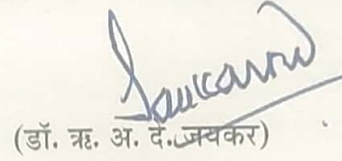 (डॉ. ऋ. अ. दे. जयकर)